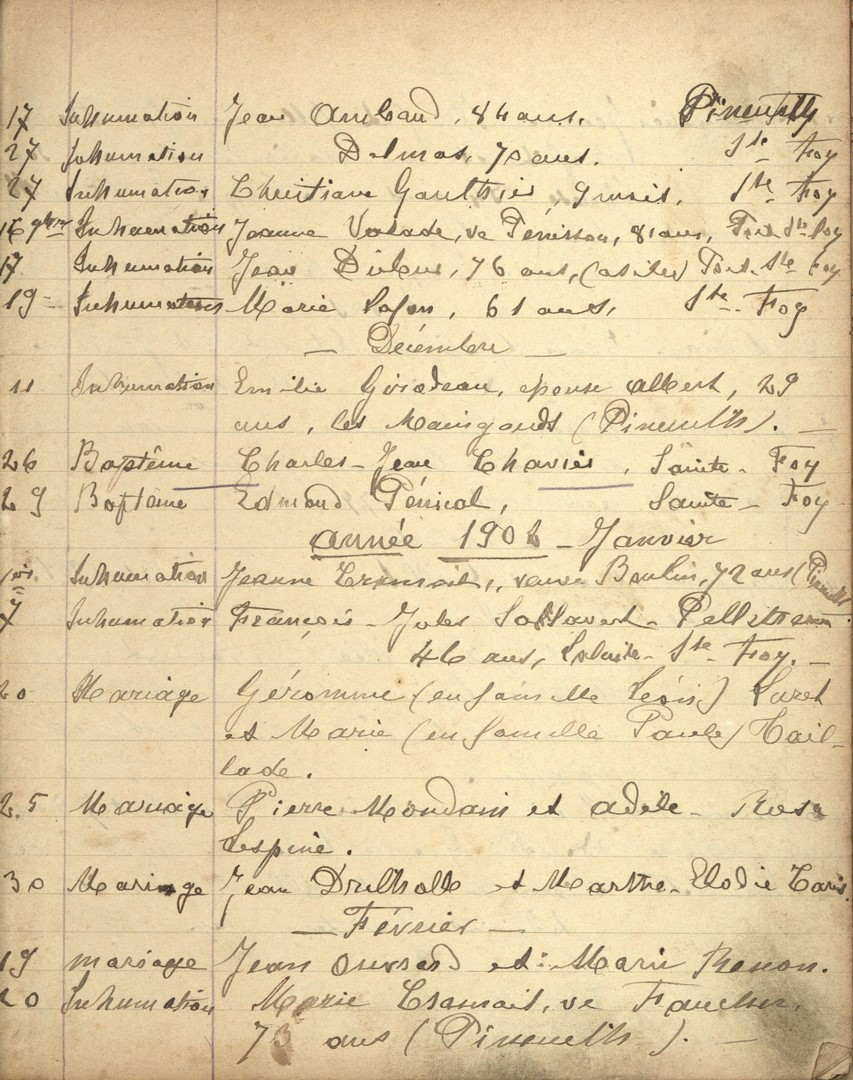 17 Inhumation Jean Arribaud, 84 ans. Pineuilh
27 Inhumation Delmas, 70 ans. Ste Foy
27 Inhumation Christiane Gauthier, 9 mois, Ste Foy
16 9bre Inhumation Jeanne Valade, ve Pénisson, 81 ans, Port Ste Foy
17 Inhumation Jean 76 ans, (asile) Port-Ste Foy
19 Inhumation Marie Lafon, 61 ans, Ste-Foy
— Décembre —
11 Inhumation Emilie Girodeau, epouse Albert, 29
ans, les Maingauds (Pineuilh). —
26 Baptême Charles-Jean Chavier, Sainte-Foy
29 Baptême Edmond Sainte-Foy
année 190 - Janvier
1er Inhumation Jeanne veuve Boulin, 72 ans (Pineuilh).
7 Inhumation François-Jules
46 ans, Ste-Foy. —
20 Mariage Géromme (en famille Léonis) Suret
et Marie (en famille Paule) Tail-
lade.
25 Mariage Pierre Mondain et Adèle-Rose
Lespine.
30 Mariage Jean Drilholle et Marthe-Elodie Taris.
— Février —
19 mariage Jean et Marie Renon.
20 Inhumation Marie ve Faucher,
73 ans (Pineuilh). —